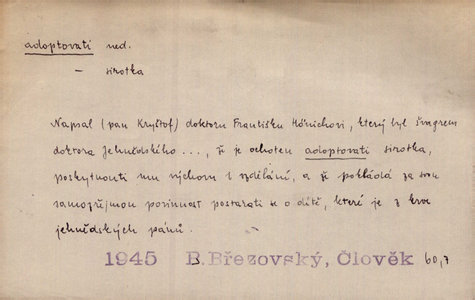 adoptovati ned.
— sirotka
Napsal (pan Kryštof) doktoru Františku Hörnichovi, který byl švagrem
doktora Jehnědského..., že je ochoten adoptovati sirotka,
poskytnouti mu výchovu i vzdělání, a že pokládá za svou
samozřejmou povinnost postarati se o dítě, které je z krve
jehnědských pánů. —
1945 B. Březovský, Člověk 60,7